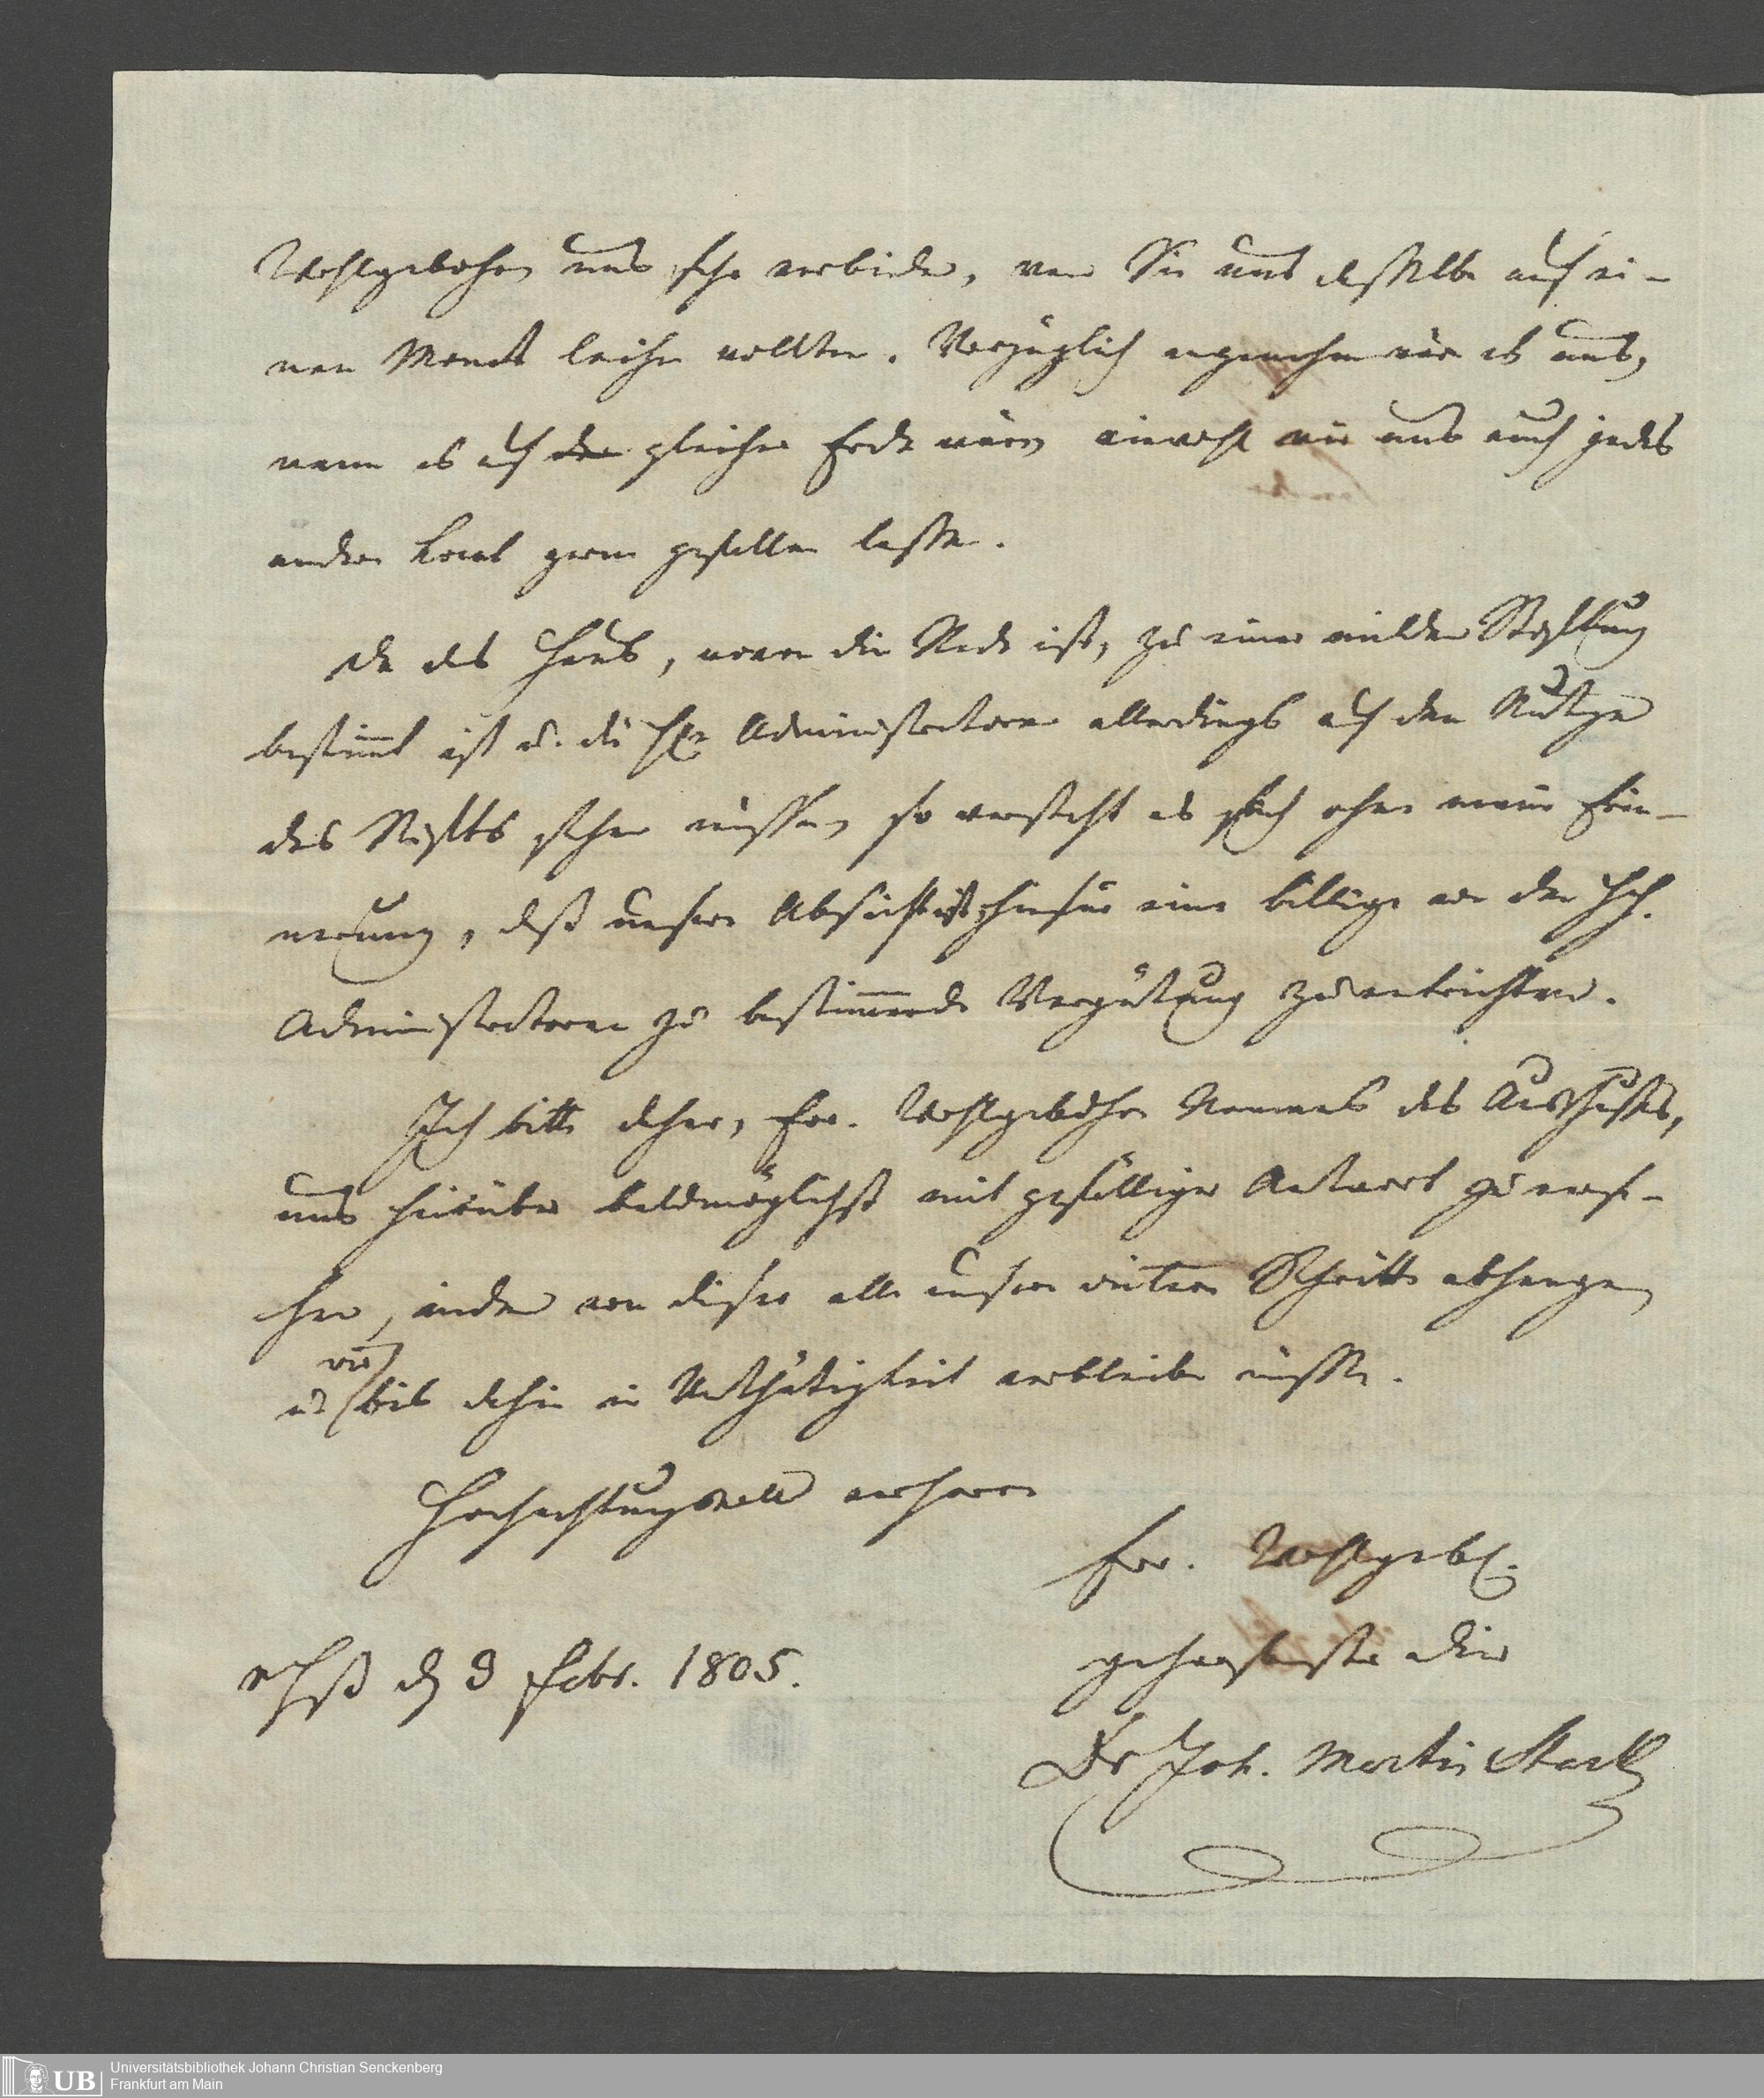 Wohlgebohren uns sehr verbinden, wenn Sie uns dasselbe auf ei-
nen Monat leihen wollten. Vorzüglich angenehm wär es uns,
wenn es auf der gleichen Erde wäre, wiewohl wir uns auch jedes
andere Local gern gefallen lassen.
Da das Haus, wovon die Rede ist, zu einer milden Stiftung
bestimmt ist u. die HEr Administratoren allerdings auf den Nutzen
des Stifts sehen müssen, so versteht es sich ohne meine Erin-
nerung, daß unsere Absicht ist, hiefür eine billige von den HH.
Administratoren zu bestimmende Vergütung zu entrichten.
Ich bitte daher, Ew. Wohlgebohren Namens des Ausschusses,
uns hierüber baldmöglichst mit gefälliger Antwort zu verse-
hen, indem von dieser alle unsere weitern Schritte abhangen,
wir
u. bis dahin in Unthätigkeit verbleiben müssen.
Hochachtungsvoll verharre
Ew. Wohlgeb.
gehorsamster Diener
d 3 Febr. 1805.
Dr Joh. Martin Starck
Universitätsbibliothek Johann Christian Senckenberg
UB
Frankfurt am Main